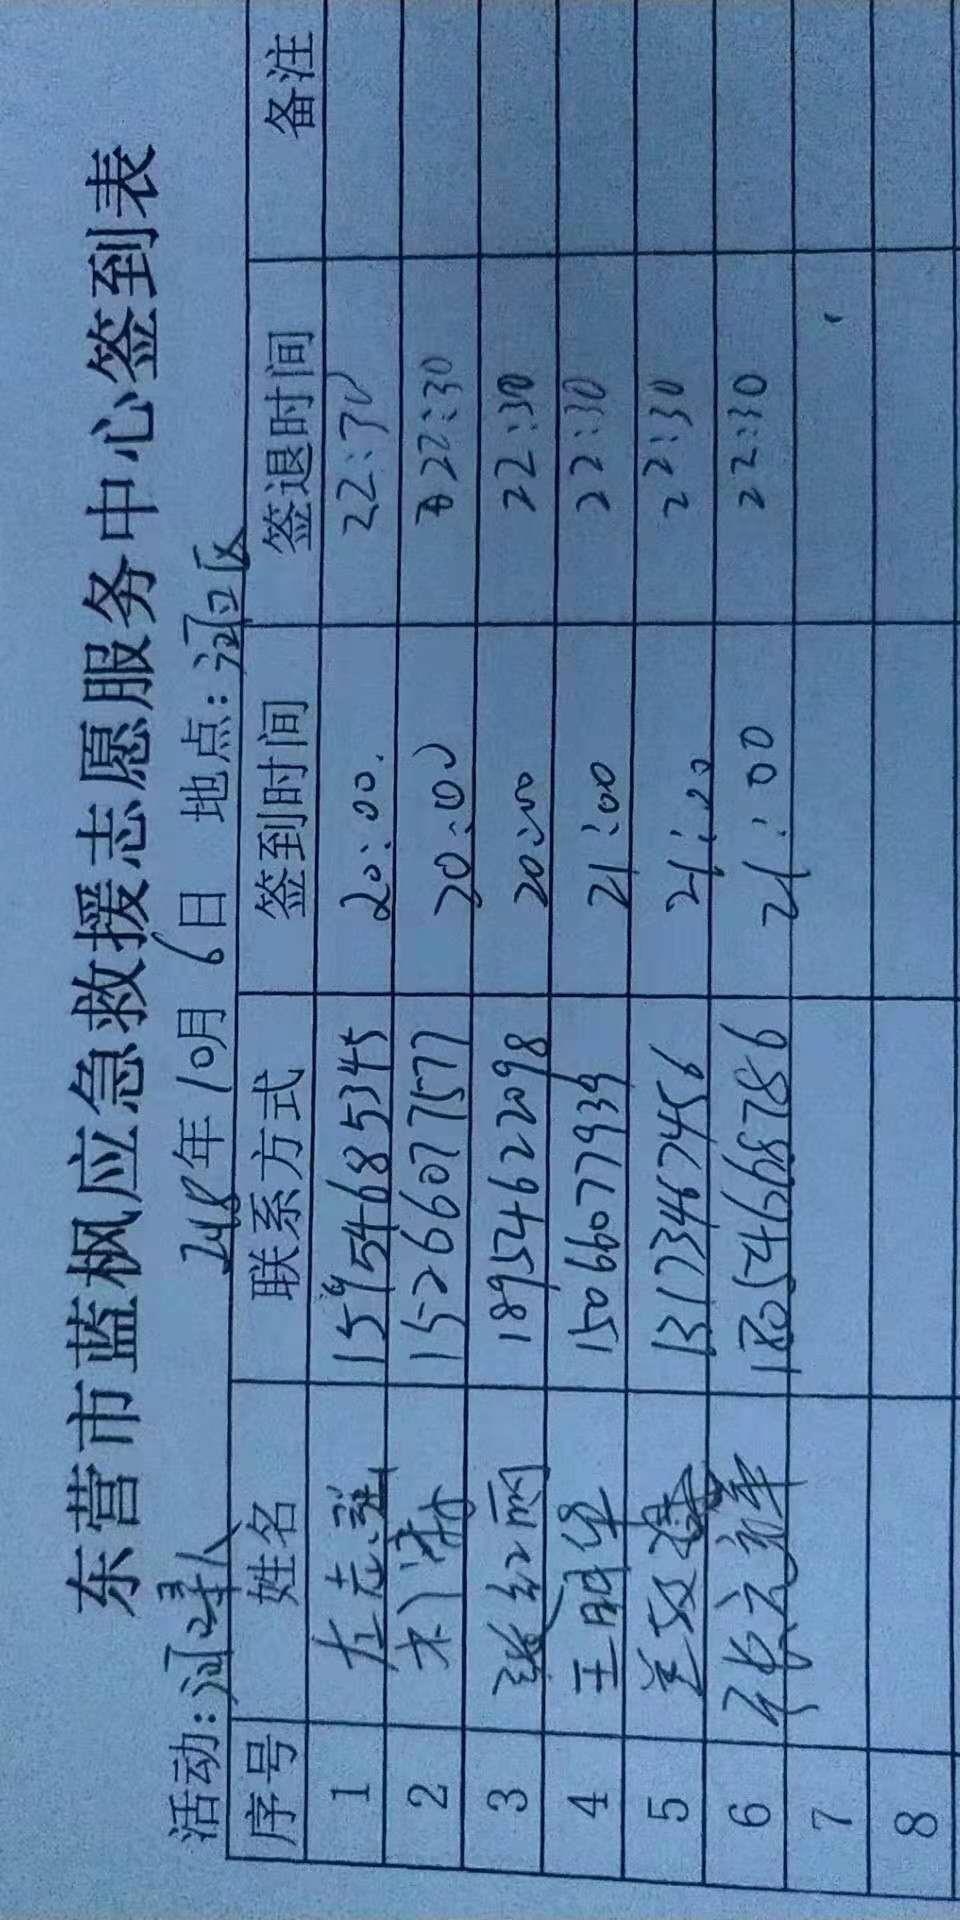 东营市蓝枫应急救援志愿服务中心签到表
活动:河口寻人 2018年10月6日 地点:河口区
序号 姓名 联系方式 签到时间 签退时间 备注
1 左志强 15954685345 20:00. 22:30
2 15266077577 20:00 22:30
3 张红丽 18954622098 20:00 22:30
4 王明华 15066077939 21:00 22:30
5 13173467456 21:00 22:30
6 18054668786 21:00 22:30
7
8